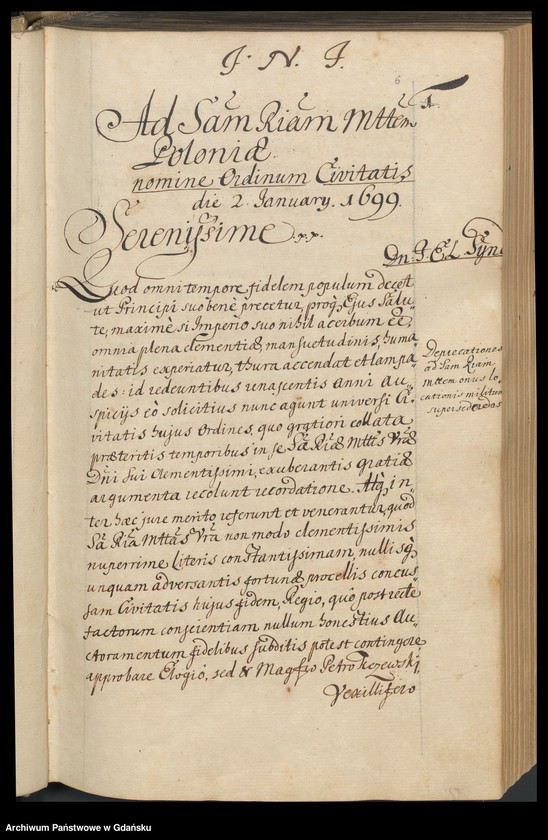 J. N. J.
6
1.
Ad Sam Riam Mttem
Poloniæ
nomine Ordinum Civitatis
die 2. January. 1699.
Serenissime.
Dn. J. E. L. Synd
Quod omni tempore fidelem populum decet
ut Principi suo benè precetur, proq; Ejus Salu-
te, maximè si Imperio suo nihil acerbum ee,
omnia plena clementiæ, mansuetudinis, huma
nitatis experiatur, thura accendat et lampa
des: id redeuntibus renascentis anni Au-
spicijs eò solicitius nunc agunt universi Ci-
vitatis hujus Ordines, quo gratiori collata
præteritis temporibus in se Sæ Riæ Mttis Vræ
Dni Sui Clementissimi, exuberantis gratiæ
argumenta recolunt recordatione. Atq; in-
ter hæc jure merito referunt et venerantur, quod
Sa Ria Mttas Vra non modo clementissimis
nuperrime literis constantissimam, nullisq;
unquam adversantis fortunæ procellis concus
sam Civitatis hujus fidem, Regio, quo post rectè
factorum conscientiam nullum honestius Au-
ctoramentum fidelibus subditis potest contingere
approbare Elogio, sed & Magfco Petro
Vexillifero
Deprecationes
ad Sam Riam
Mttem onus lo-
cationis militum
supersedendas
Archiwum Państwowe w Gdańsku